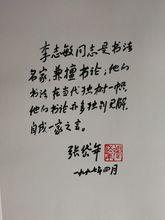 李志敏同志是书法
名家,兼擅书论,他的
书法在当代独树一帜,
他的书论亦多独到见解,
自成一家之言。
张岱年
一九九七年四月